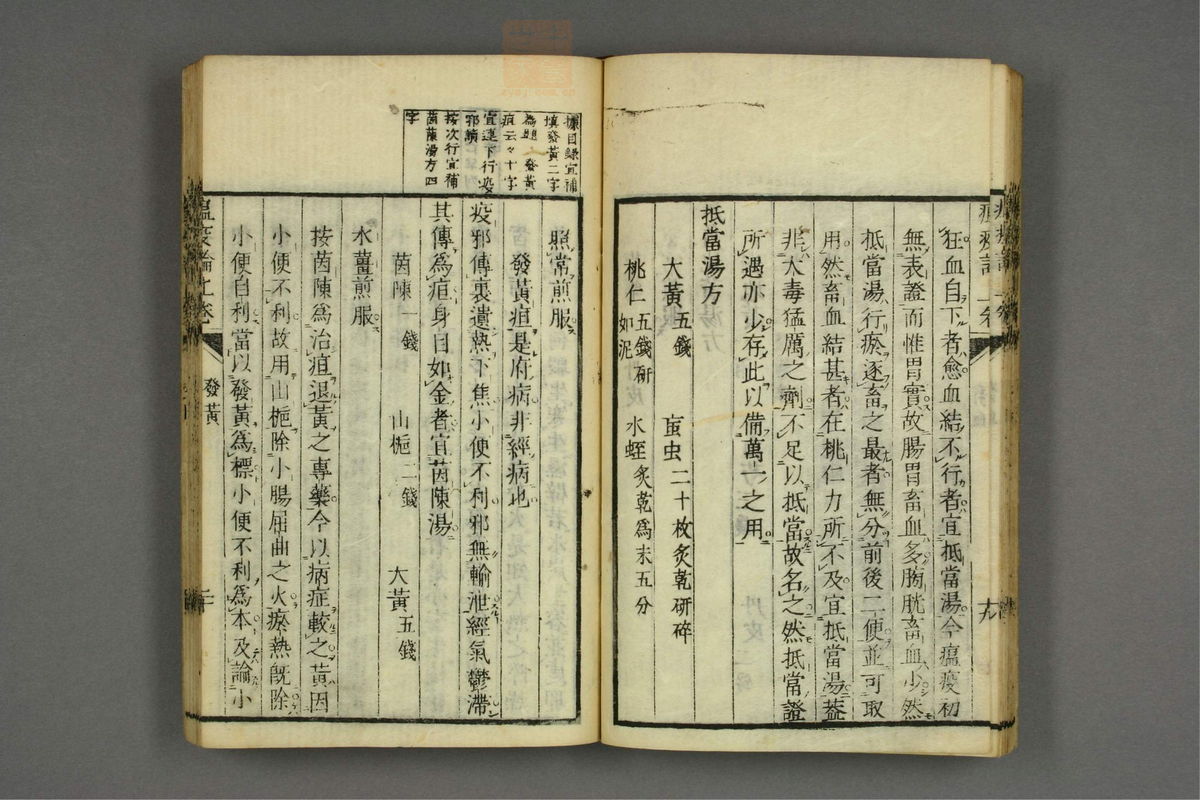 狂血自下者愈血結不行者宜抵當湯今瘟疫初
無表證而惟胃實故腸胃畜血多膀胱畜血少然
抵當湯行瘀逐畜之最者無分前後二便並可取
用然畜血結甚者在桃仁力所不及宜抵當湯蓋
非大毒猛厲之劑不足以抵當故名之然抵當證
所遇亦少存此以備萬一之用
抵當湯方
大黃五錢 䖟虫二十枚炙乾研碎
桃仁五錢研如泥 水蛭炙乾爲末五分
十九
據目錄宜補
填發黃二字
為題 發黃
疸云々十字
宜連下行疫
邪續
按次行宜補
茵蔯湯方四
字
照常煎服
發黃疸是府病非經病也
疫邪傳裏遺熱下焦小便不利邪無輸泄經氣鬱滯
其傳爲疸身目如金者宜茵陳湯
茵陳一錢 山梔二錢 大黃五錢
水薑煎服
按茵陳爲治疸退黃之專藥今以病症較之黃因
小便不利故用山梔除小腸屈曲之火瘀熱既除
小便自利當以發黃爲標小便不利爲本及論小
瘟疫論上卷 發黃 二十